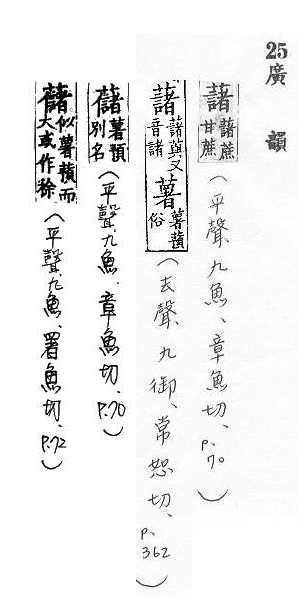 25 廣韻
藷 藷蔗甘蔗 (平聲、九魚、章魚切、p.70)
藷 藷藇又音諸 薯 薯蕷俗 (去聲、九御、常恕切、p.362)
薯蕷別名 (平聲、九魚、章魚切、P.70)
似薯蕷而大或作 (平聲、九魚、署魚切、P.72)